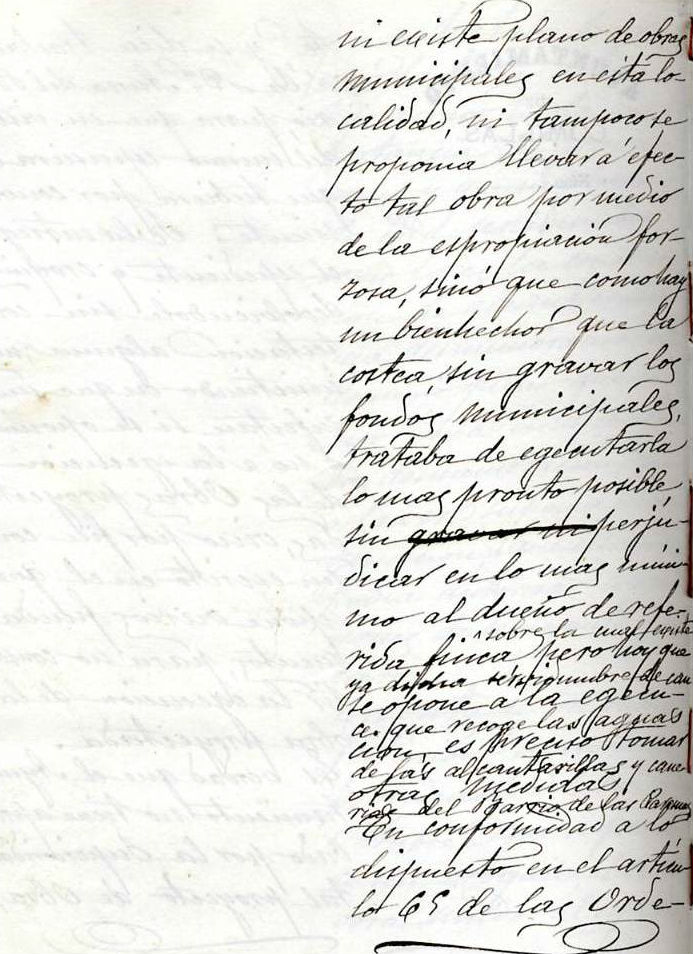 ni existe plano de obras
municipales en esta lo-
calidad, ni tampoco se
proponia llevar á efec-
to tal obra por medio
de la espropiación for-
zosa, sinó que como hay
un bienhechor que la
costea, sin gravar los
fondos municipales,
trataba de egecutarla
lo mas pronto posible,
sin gravar ni perju-
dicar en lo mas míni-
mo al dueño de refe-
sobre la cual existe
rida finca pero hoy que
ya dicha servidumbre de cau
se opone a la egecu-
ce que recoge las aguas
ción, es preciso tomar
de las alcantarillas y cane
otras medidas.
rias del Barrio de las
En conformidad a lo
dispuesto en el artícu-
lo 65 de las Orde-